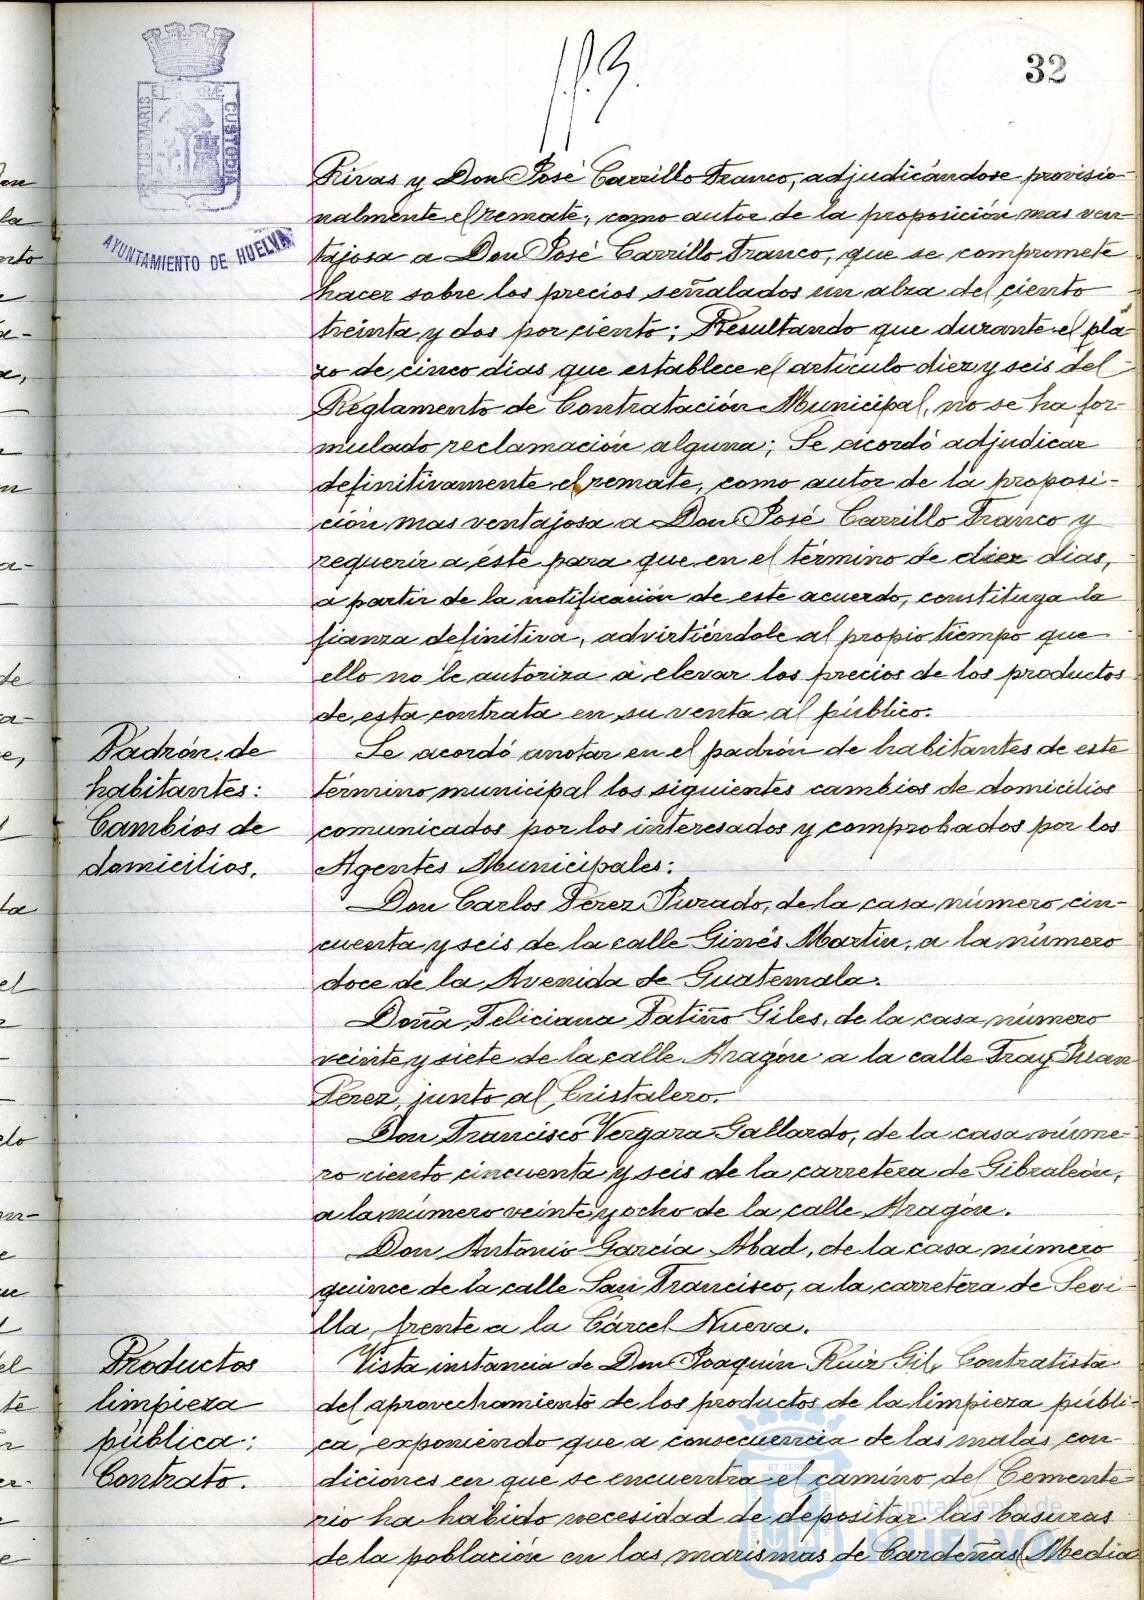 32
PORTUS MARIS ET TERRÆ CUSTODIA
AYUNTAMIENTO DE HUELVA
Rivas y Don José Carrillo Franco, adjudicándose provisio-
nalmente el remate, como autor de la proposición mas ven-
tajosa a Don José Carrillo Franco, que se compromete
hacer sobre los precios señalados un alza del ciento
treinta y dos por ciento; Resultando que durante el pla-
zo de cinco dias que establece el artículo diez y seis del
Reglamento de Contratación Municipal, no se ha for-
mulado reclamación alguna; Se acordó adjudicar
definitivamente el remate, como autor de la proposi-
ción mas ventajosa a Don José Carrillo Franco y
requerir a éste para que en el término de diez dias,
a partir de la notificación de este acuerdo, constituya la
fianza definitiva, advirtiéndole al propio tiempo que
ello no le autoriza a elevar los precios de los productos
de esta contrata en su venta al público.
Padrón de
habitantes:
Cambios de
domicilios.
Se acordó anotar en el padrón de habitantes de este
término municipal los siguientes cambios de domicilios
comunicados por los interesados y comprobados por los
Agentes Municipales:
Don Carlos Perez Jurado, de la casa número cin-
cuenta y seis de la calle Ginés Martin, a la número
doce de la Avenida de Guatemala.
Doña Feliciana Patiño Giles, de la casa número
veinte y siete de la calle Aragón a la calle Fray Juan
Pérez, junto al Cristalero.
Don Francisco Vergara Gallardo, de la casa núme-
ro ciento cincuenta y seis de la carretera de Gibraleón,
a la número veinte y ocho de la calle Aragón.
Don Antonio García Abad, de la casa número
quince de la calle San Francisco, a la carretera de Sevi-
lla, frente a la Cárcel Nueva.
Productos
limpieza
pública:
Contrato.
Vista instancia de Don Joaquín Ruiz Gil, Contratista
del aprovechamiento de los productos de la limpieza públi-
ca, exponiendo que a consecuencia de las malas con-
diciones en que se encuentra el camino del Cemente-
rio ha habido necesidad de depositar las basuras
de la población en las marismas de Cardeñas (Media
Ayuntamiento de
HUELVA